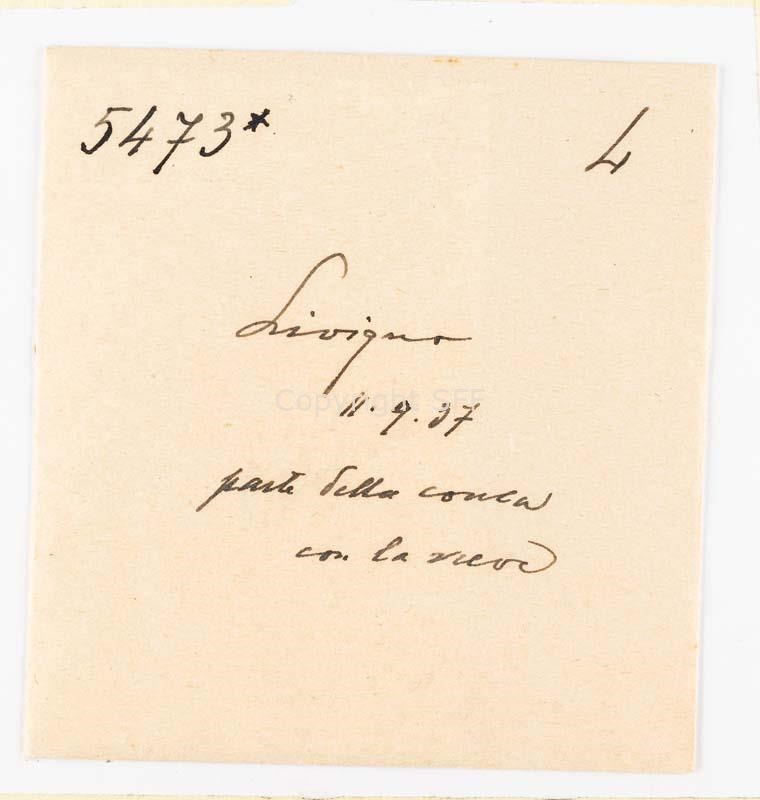 5473* 4
Livigno
11.9.37
parte della conca
con la neve
Copyright SEF